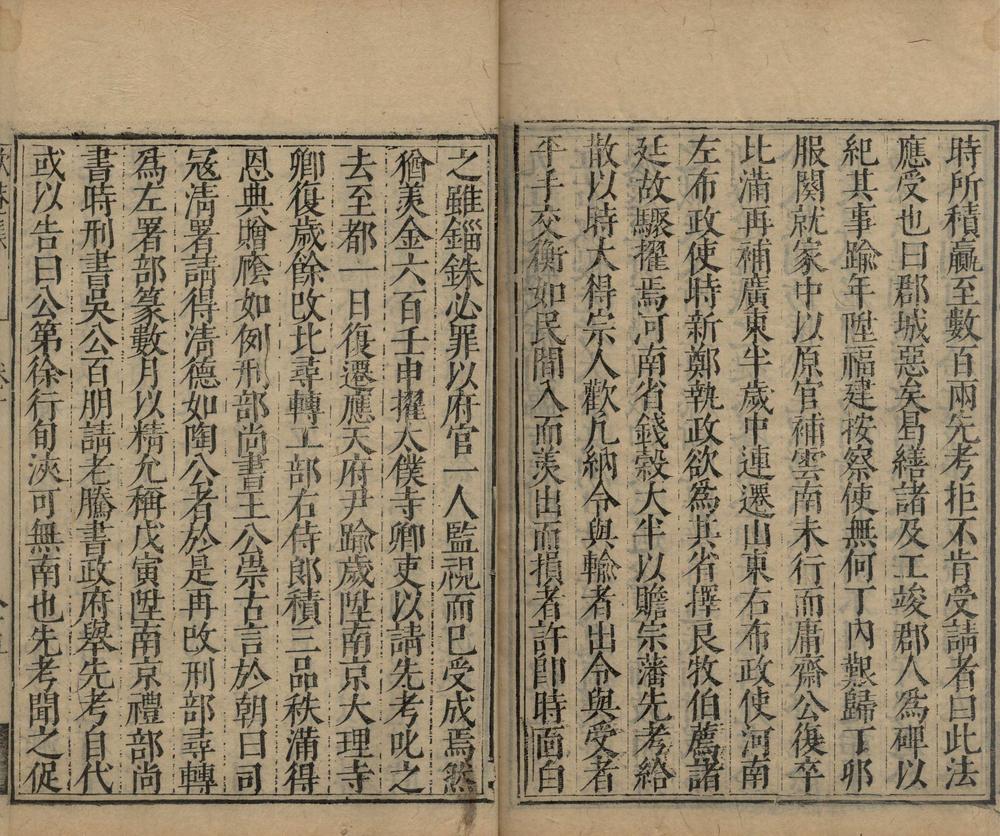 時所積贏至數百兩先考拒不肯受請者曰此法
應受也曰郡城惡矣曷繕諸及工竣郡人為碑以
紀其事踰年陞福建按察使無何丁內艱歸丁卯
服闋就家中以原官補雲南未行而庸齋公復卒
比滿再補廣東半歲中連遷山東右布政使河南
左布政使時新鄭執政欲為其省擇良牧伯薦諸
廷故驟擢焉河南省錢穀大半以贍宗藩先考給
散以時大得宗人歡凡納令與輸者出令與受者
平手交衡如民間入而羨出而損者許即時面白
之雖錙銖必罪以府官一人監視而已受成焉然
猶羨金六百壬申擢太僕寺卿吏以請先考叱之
去至都一日復遷應天府尹踰歲陞南京大理寺
卿復歲餘改北尋轉工部右侍郎積三品秩滿得
恩典贈廕如例刑部尚書王公崇古言於朝曰司
寇淸署請得淸德如陶公者於是再改刑部尋轉
為左署部篆數月以精允稱戊寅陞南京禮部尚
書時刑書吳公百朋請老騰書政府舉先考自代
或以告曰公第徐行旬浹可無南也先考聞之促